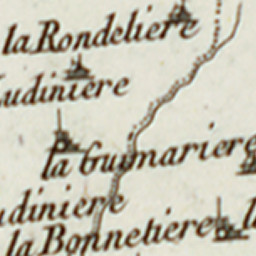 la Rondeliere
udiniere
la Guimariere
udiniere
la Bonnetiere